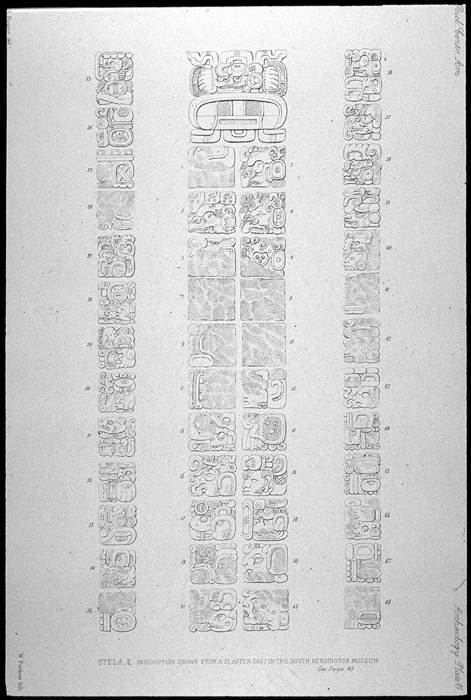 Biol. Centr. Am.
23 36
24 37
25 2 38
26 3 4 39
27 5 6 40
28 7 8 41
29 9 10 42
30 11 12 43
31 13 14 44
32 15 16 45
33 17 18 46
34 19 20 47
35 21 22 48
Archæology Plate
STELA, E. INSCRIPTION DRAWN FROM A PLASTER CAST IN THE SOUTH KENSINGTON MUSEUM
See Page